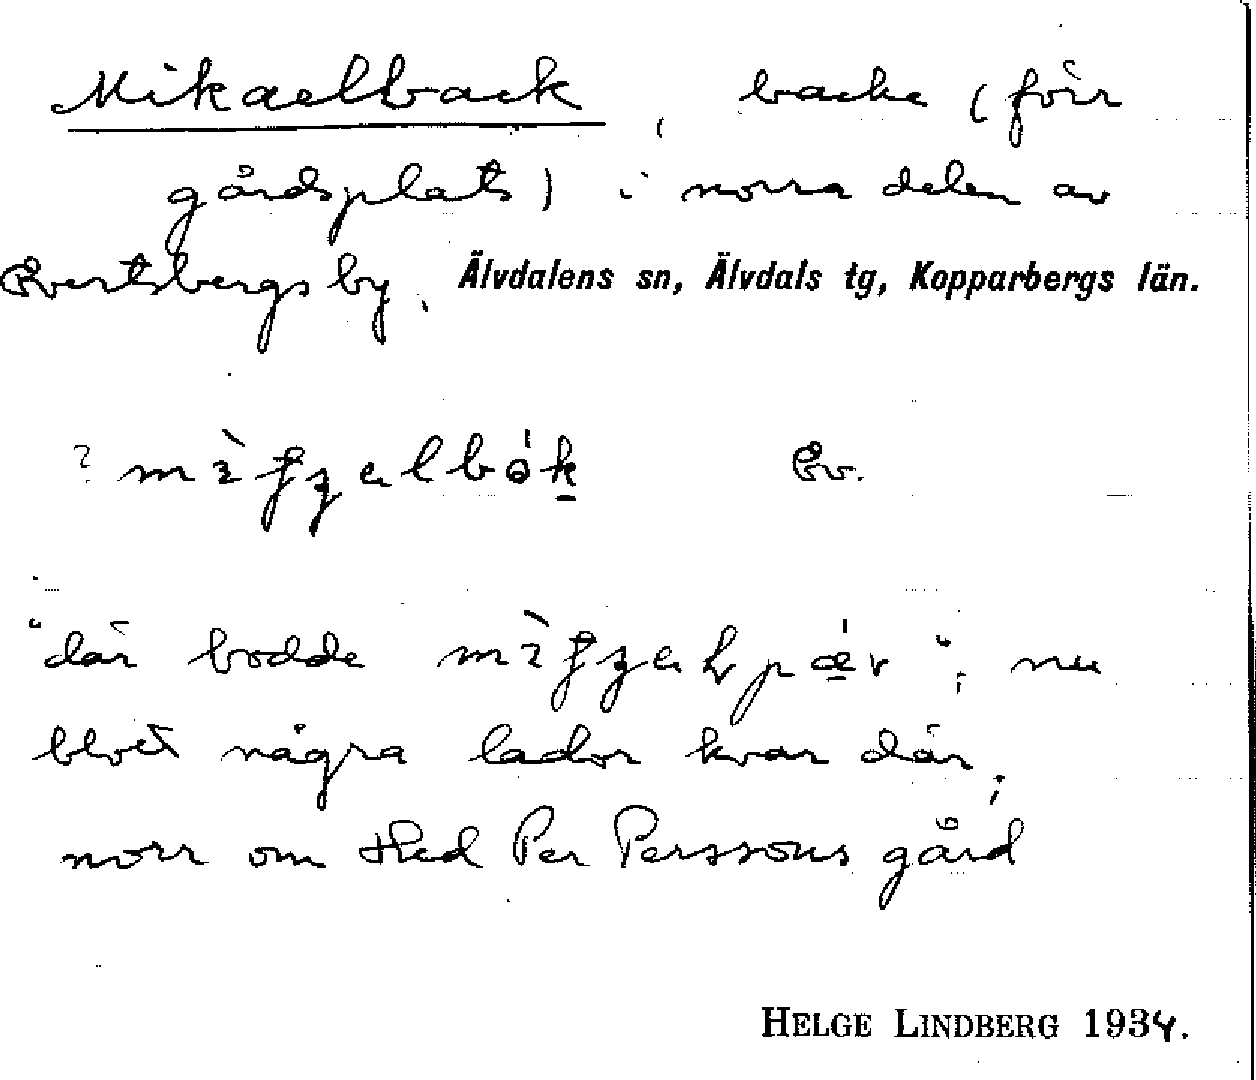 Mikaelback, backe (förr
gårdsplats) i norra delen av
Evertsbergs by. Älvdalens sn, Älvdals tg, Kopparbergs län.
? Ev.
"där bodde "; nu
blott några lador kvar där;
norr om Hed Per Perssons gård
HELGE LINDBERG 1934.